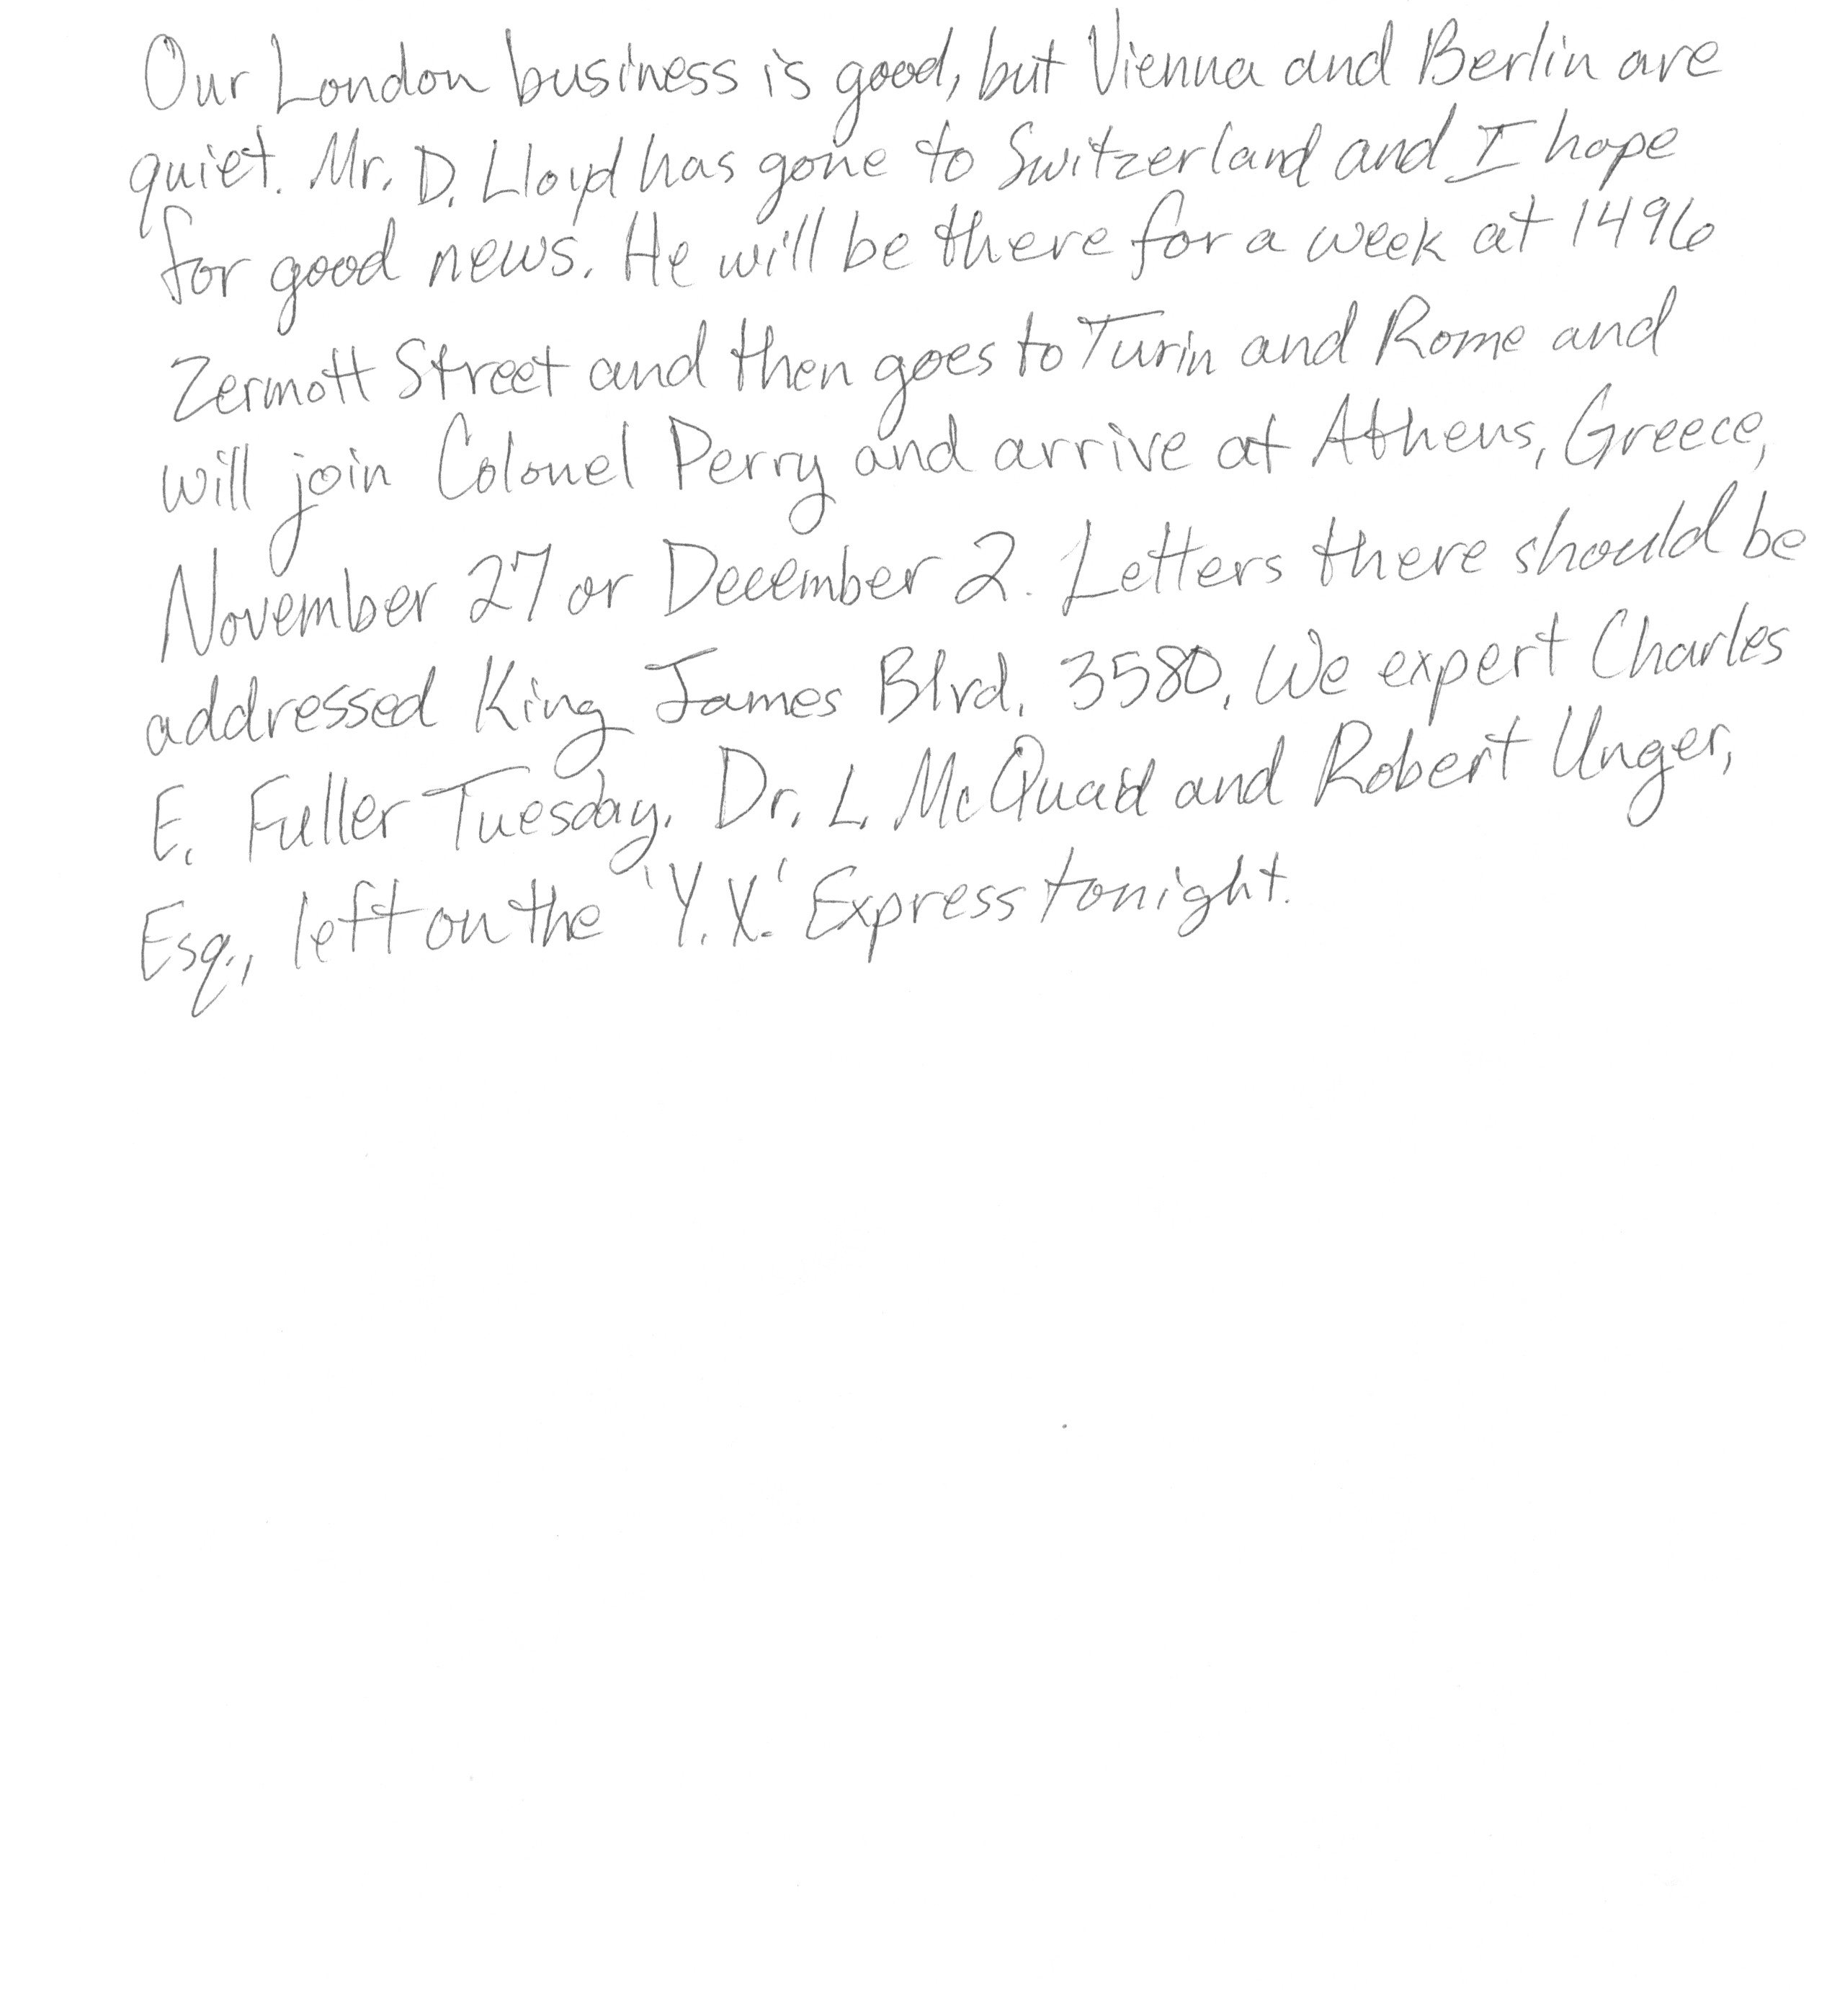 Our London business is good, but Vienna and Berlin are
quiet. Mr. D. Lloyd has gone to Switzerland and I hope
for good news. He will be there for a week at 1496
Zermott Street and then goes to Turin and Rome and
will join Colonel Perry and arrive at Athens, Greece,
November 27 or December 2. Letters there should be
addressed King James Blvd. 3580. We expert Charles
E. Fuller Tuesday. Dr. L. McQuaid and Robert Unger,
Esq., left on the 'Y.X.' Express tonight.